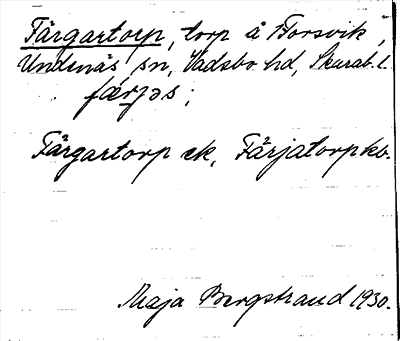 Färgartorp, torp å Forsvik,
Undenäs sn, Vadsbo hd, Skarab. l.
færjəs;
Färgartorp ek, Färjatorp kb.
Maja Bergstrand 1930.